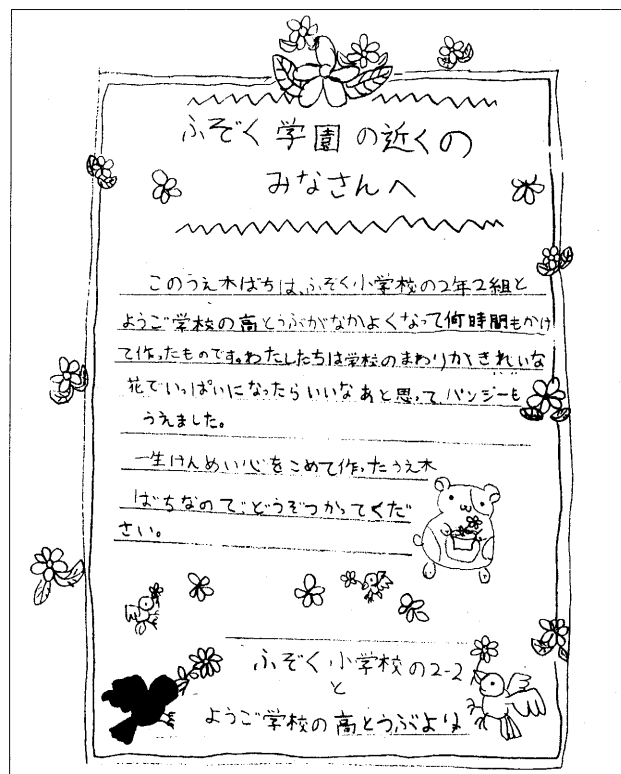 ふぞく学園の近くの
みなさんへ
このうえ木ばちは、ふぞく小学校の2年2組と
ようご学校の高とうぶがなかよくなって何時間もかけ
て作ったものです。わたしたちは学校のまわりがきれいな
花でいっぱいになったらいいなあと思って パンジーも
うえました。
一生けんめい心をこめて作ったうえ木
ばちなので、どうぞつかってくだ
さい。
ふぞく小学校の2-2
と
ようご学校の高とうぶより